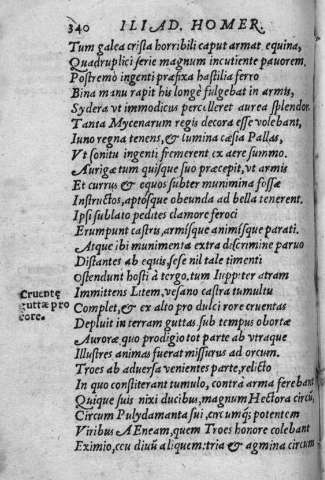 340 ILIAD. HOMER.
Tum galea crista horribili caput armat equina,
Quadruplici serie magnum incutiente pauorem.
Postremò ingenti præfixa hastilia ferro
Bina manu rapit his longè fulgebat in armis,
Sydera vt immodicus percelleret aurea splendor.
Tanta Mycenarum regis decora esse volebant,
Iuno regna tenens, & lumina cæsia Pallas,
Vt sonitu ingenti fremerent ex aere summo.
Aurigæ tum quisque suo præcepit, vt armis
Et currus & equos subter munimina fossæ
Instructos, aptosque obeunda ad bella tenerent.
Ipsi sublato pedites clamore feroci
Erumpunt castris, armisque animisque parati.
Atque ibi munimenta extra discrimine paruo
Distantes ab equis, sese nil tale timenti
Ostendunt hosti à tergo, tum Iuppiter atram
Immittens Litem, vesano castra tumultu
Complet, & ex alto pro dulci rore cruentas
Depluit in terram guttas sub tempus obortæ
Auroræ quo prodigio tot parte ab vtraque
Illustres animas fuerat missurus ad orcum.
Troes ab aduersa venientes parte, relicto
In quo constiterant tumulo, contra arma ferebant
Quique suis nixi ducibus, magnum Hectora circũ,
Circum Pulydamanta sui, circumq; potentem
Viribus AEneam, quem Troes honore colebant
Eximio, ceu diuũ aliquem: tria & agmina circum
Cruentę
guttæ pro
rore.